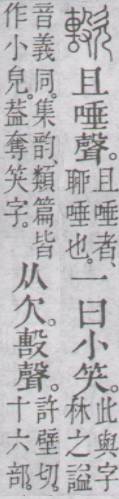 且唾聲。且唾者、聊唾也。一曰小笑。此與字林之謚
音義同。集韵、類篇皆作小皃。葢奪笑字。从欠。毄聲。許壁切。十六部。